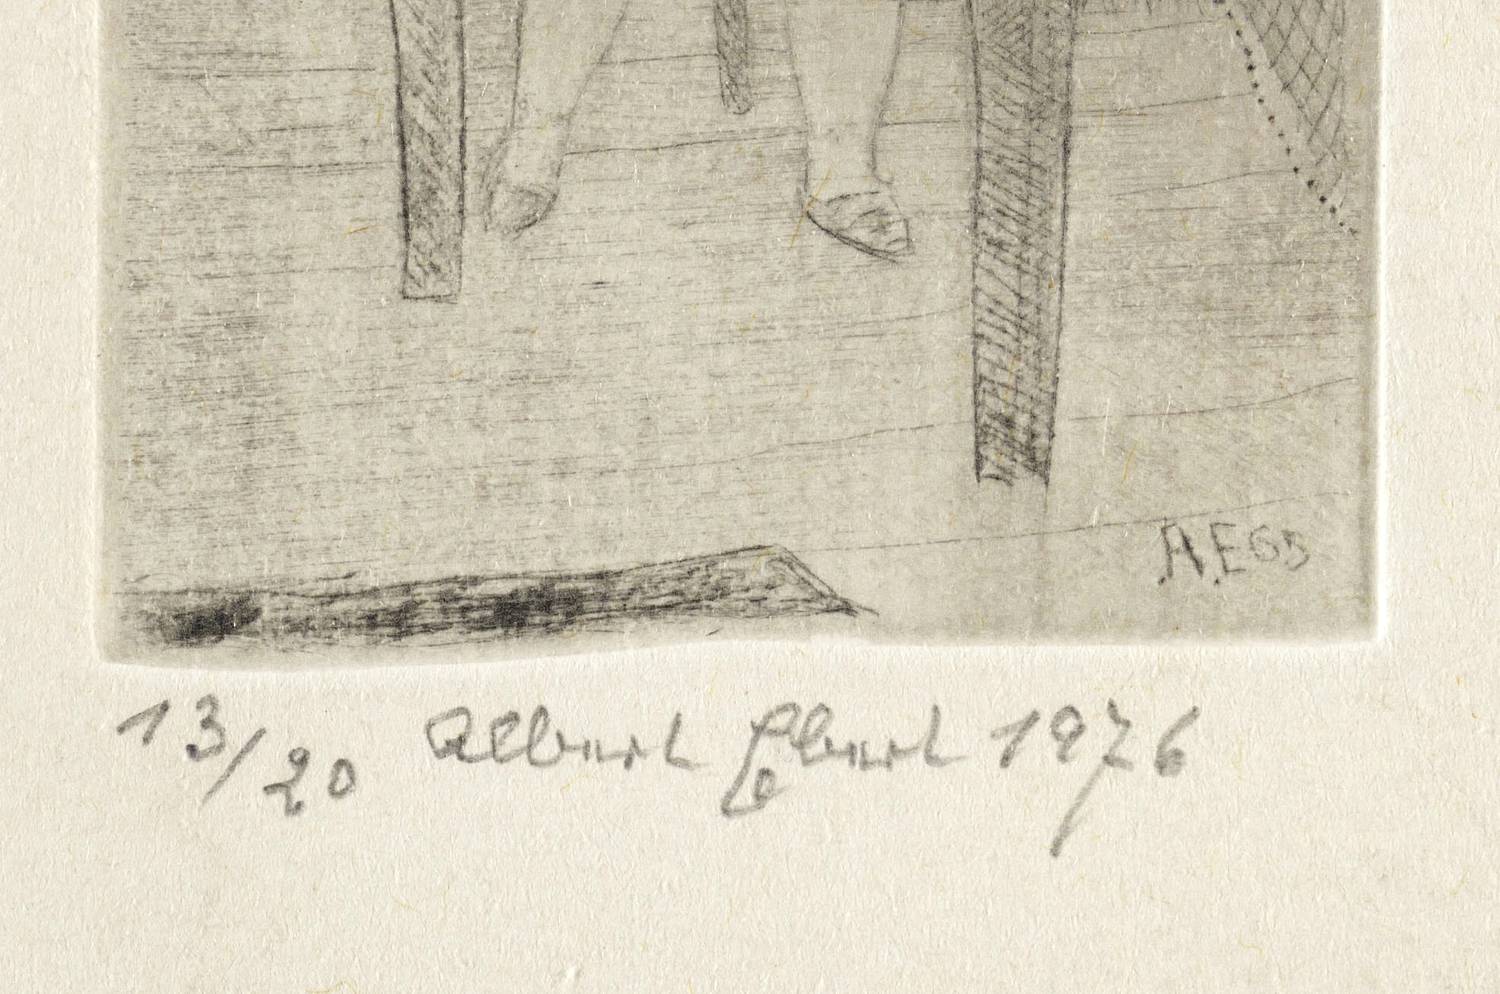 A.E65
13/20 Albert Ebert 1976